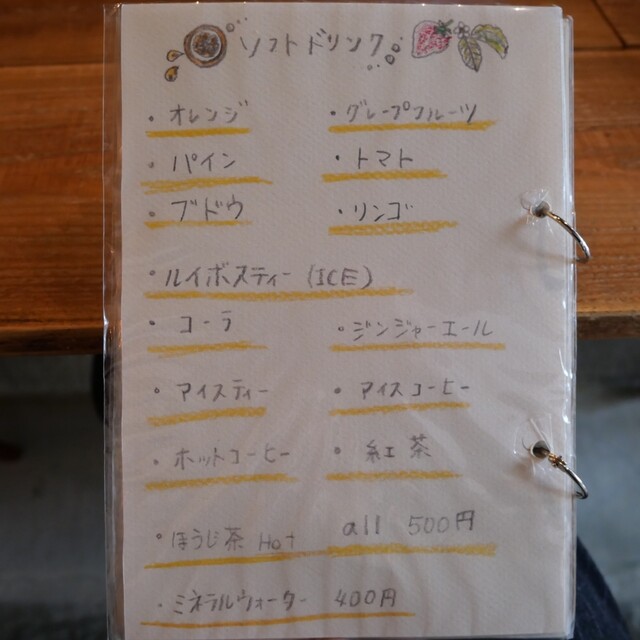 ソフトドリンク
・オレンジ ・グレープフルーツ
・パイン ・トマト
・ブドウ ・リンゴ
・ルイボスティー (ICE)
・コーラ ・ジンジャーエール
・アイスティー ・アイスコーヒー
・ホットコーヒー ・紅茶
・ほうじ茶 Hot all 500円
・ミネラルウォーター 400円